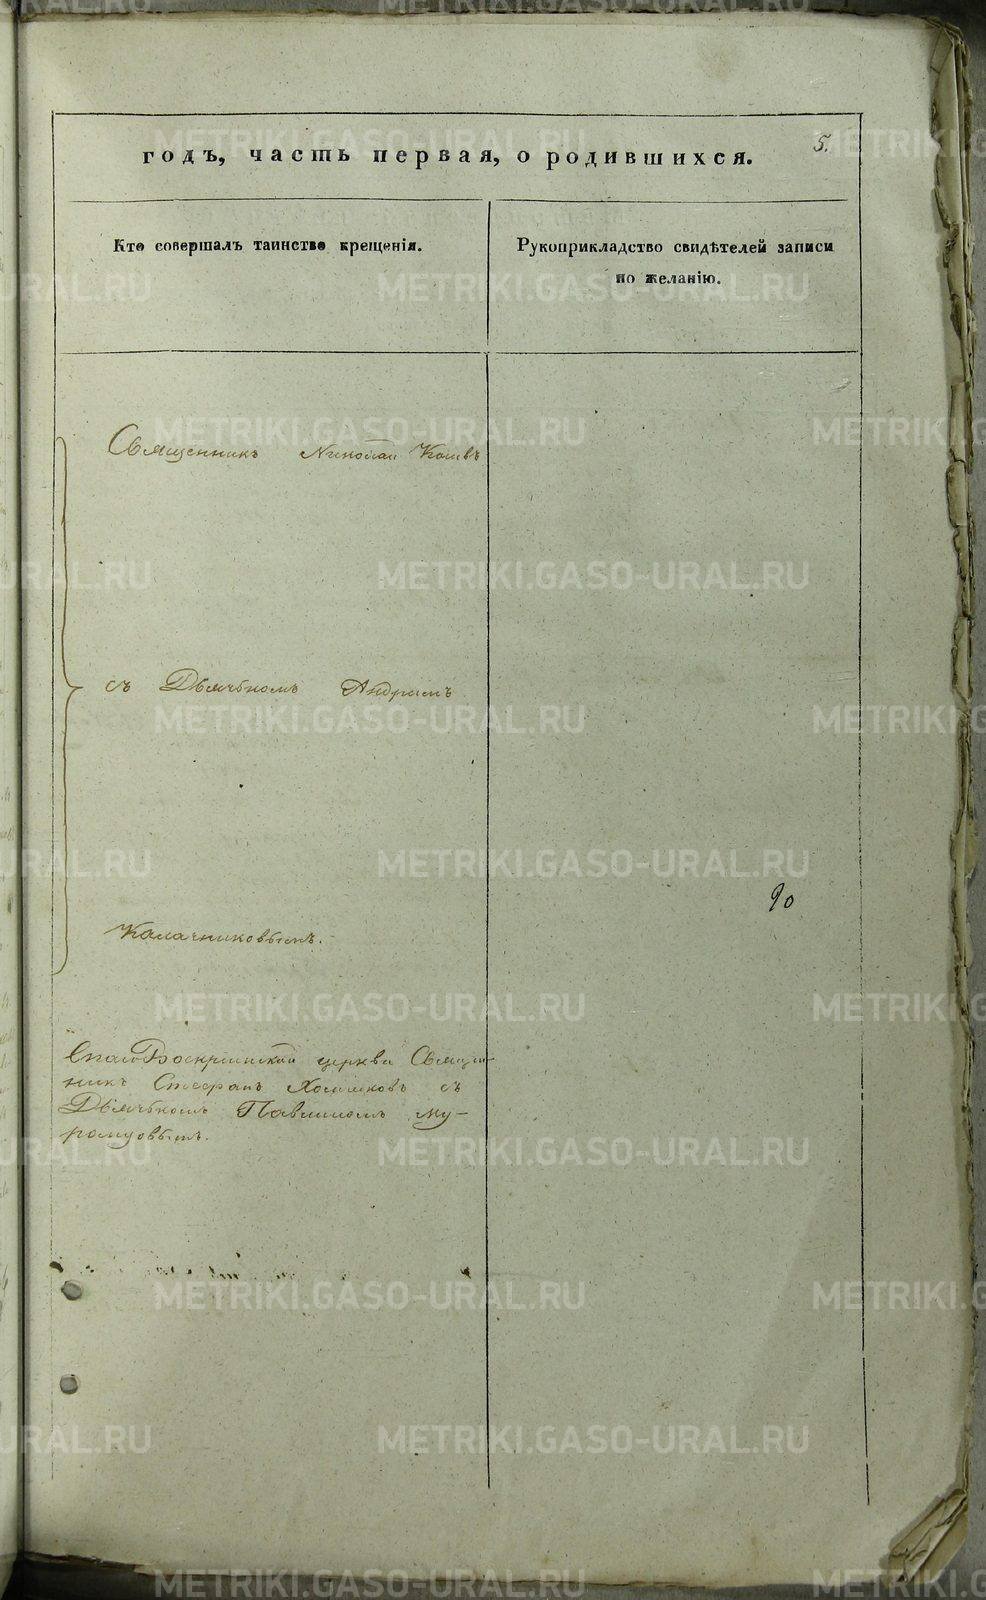 годъ, часть первая, о родившихся.
5.
Кто совершалъ таинство крещенія.
Рукоприкладство свидѣтелей записи
по желанію.
Священникъ Николай
съ Дьячкомъ Андреемъ
90
Калачниковымъ.
церкви Священ-
никъ Стефанъ Хлопковъ съ
Дьячкомъ Павломъ Му-
ромцовымъ.
METRIKI.GASO-URAL.RU